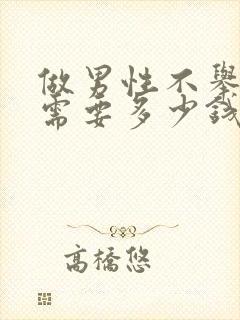 做男性不舉
需要多少錢
高橋悠